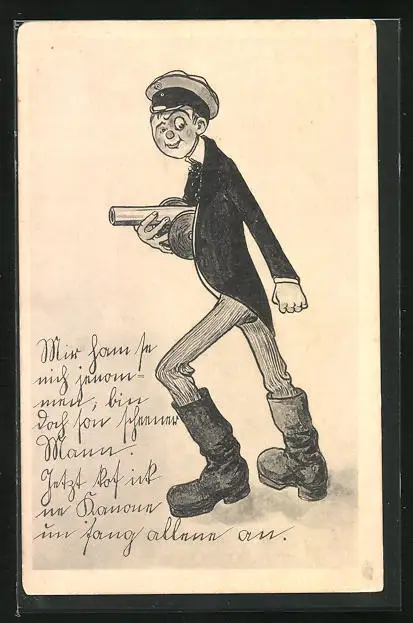 Mir ham se
nich jenom=
men, bin
doch son scheener
Mann.
Jetzt kof ick
ne Kanone
un fang allene an.